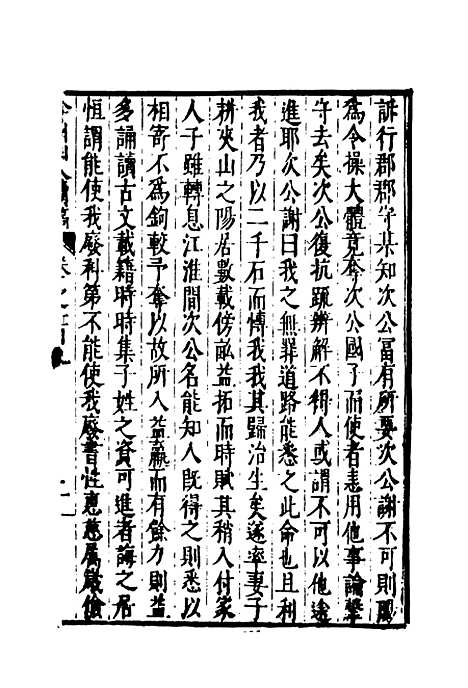 訴行郡郡守某知次公冨有所要次公謝不可則
為令操大體竟奪次公國子而使者恚用他事論
守去矣次公復抗䟽辨解不得人或謂不可以他途
進耶次公謝曰我之無罪道路能悉之此命也且利
我者乃以二千石而慱我我其歸治生矣遂率妻子
耕夾山之陽居數載傍畝益拓而時賦其稍入付家
人子雖轉息江淮間次公名能知人既得之則悉以
相寄不為鉤較予奪以故所入益羸而有餘力則益
多誦讀古文載籍時時集子姓之資可進者誨之居
恒謂能使我廢科第不能使我廢書性惠慈属嚴儉